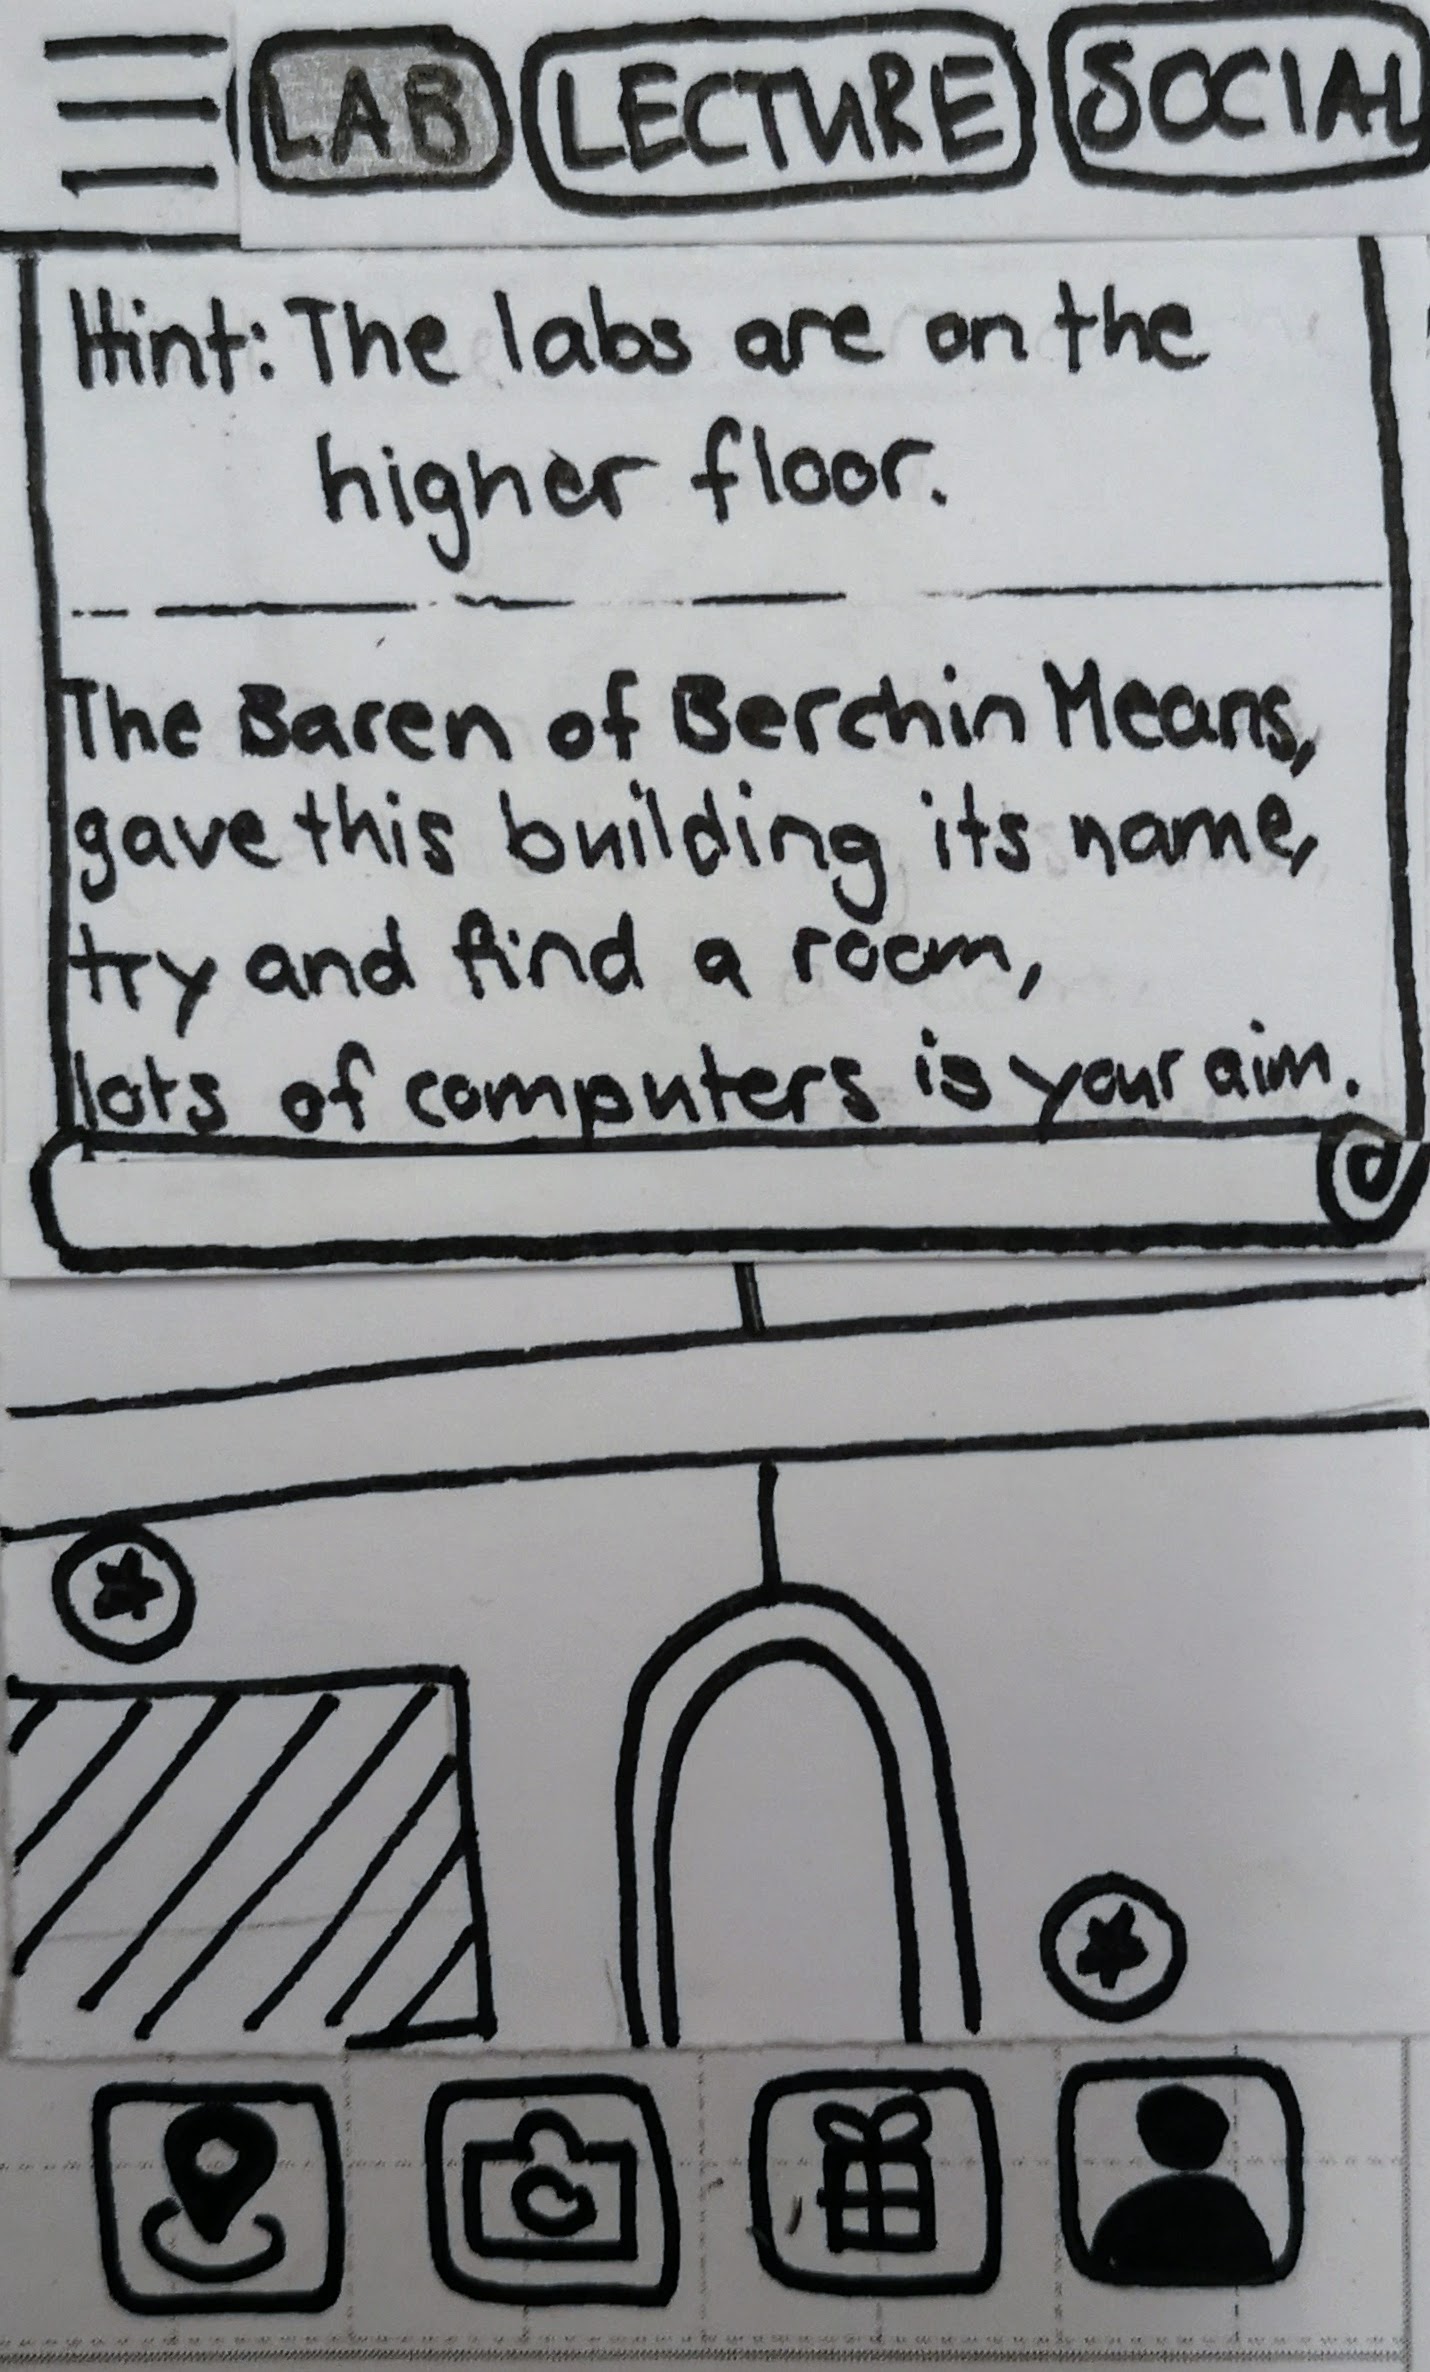 LAB LECTURE SOCIAL
Hint: The labs are on the
higher floor.
The Baren of Berchin Means,
gave this building its name,
try and find a room,
lots of computers is your aim.